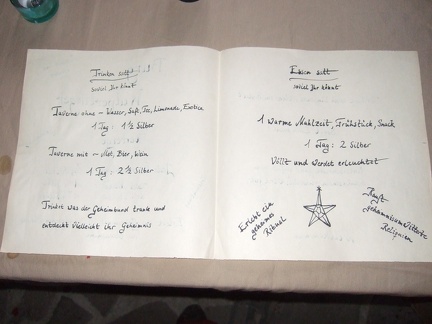 Trinken satt
soviel Ihr könnt
Taverne ohne – Wasser, Saft, Tee, Limonade, Exotica
1 Tag: 1 ½ Silber
Taverne mit – Met, Bier, Wein
1 Tag: 2 ½ Silber
Trinkt was der Geheimbund trank und
entdeckt vielleicht ihr Geheimnis
Essen satt
soviel Ihr könnt
1 warme Mahlzeit, Frühstück, Snack
1 Tag: 2 Silber
Völlt und werdet erleuchtet
Erlebt ein
geheimes
Ritual
Kauft
Reliquien